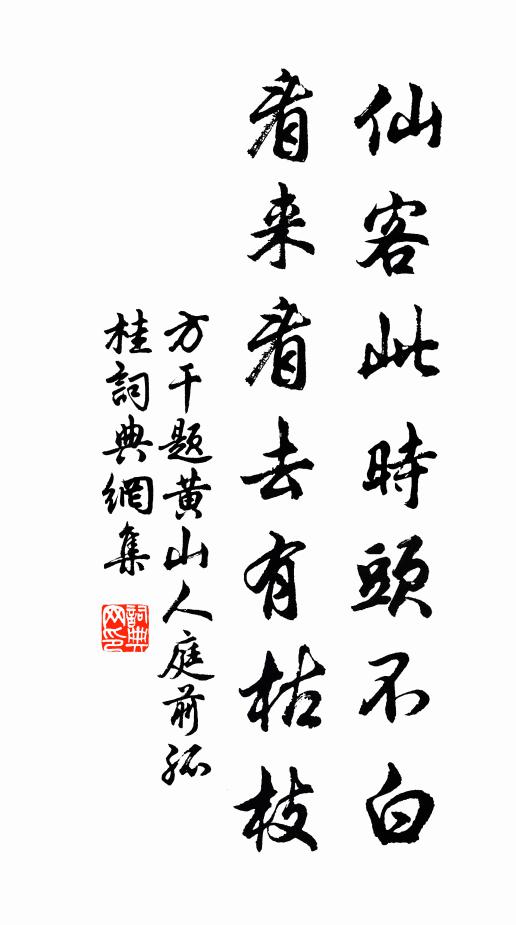 仙客此時頭不白
看来看去有枯枝
方干题黄山人庭前孤
桂詞典網集
詞典网印